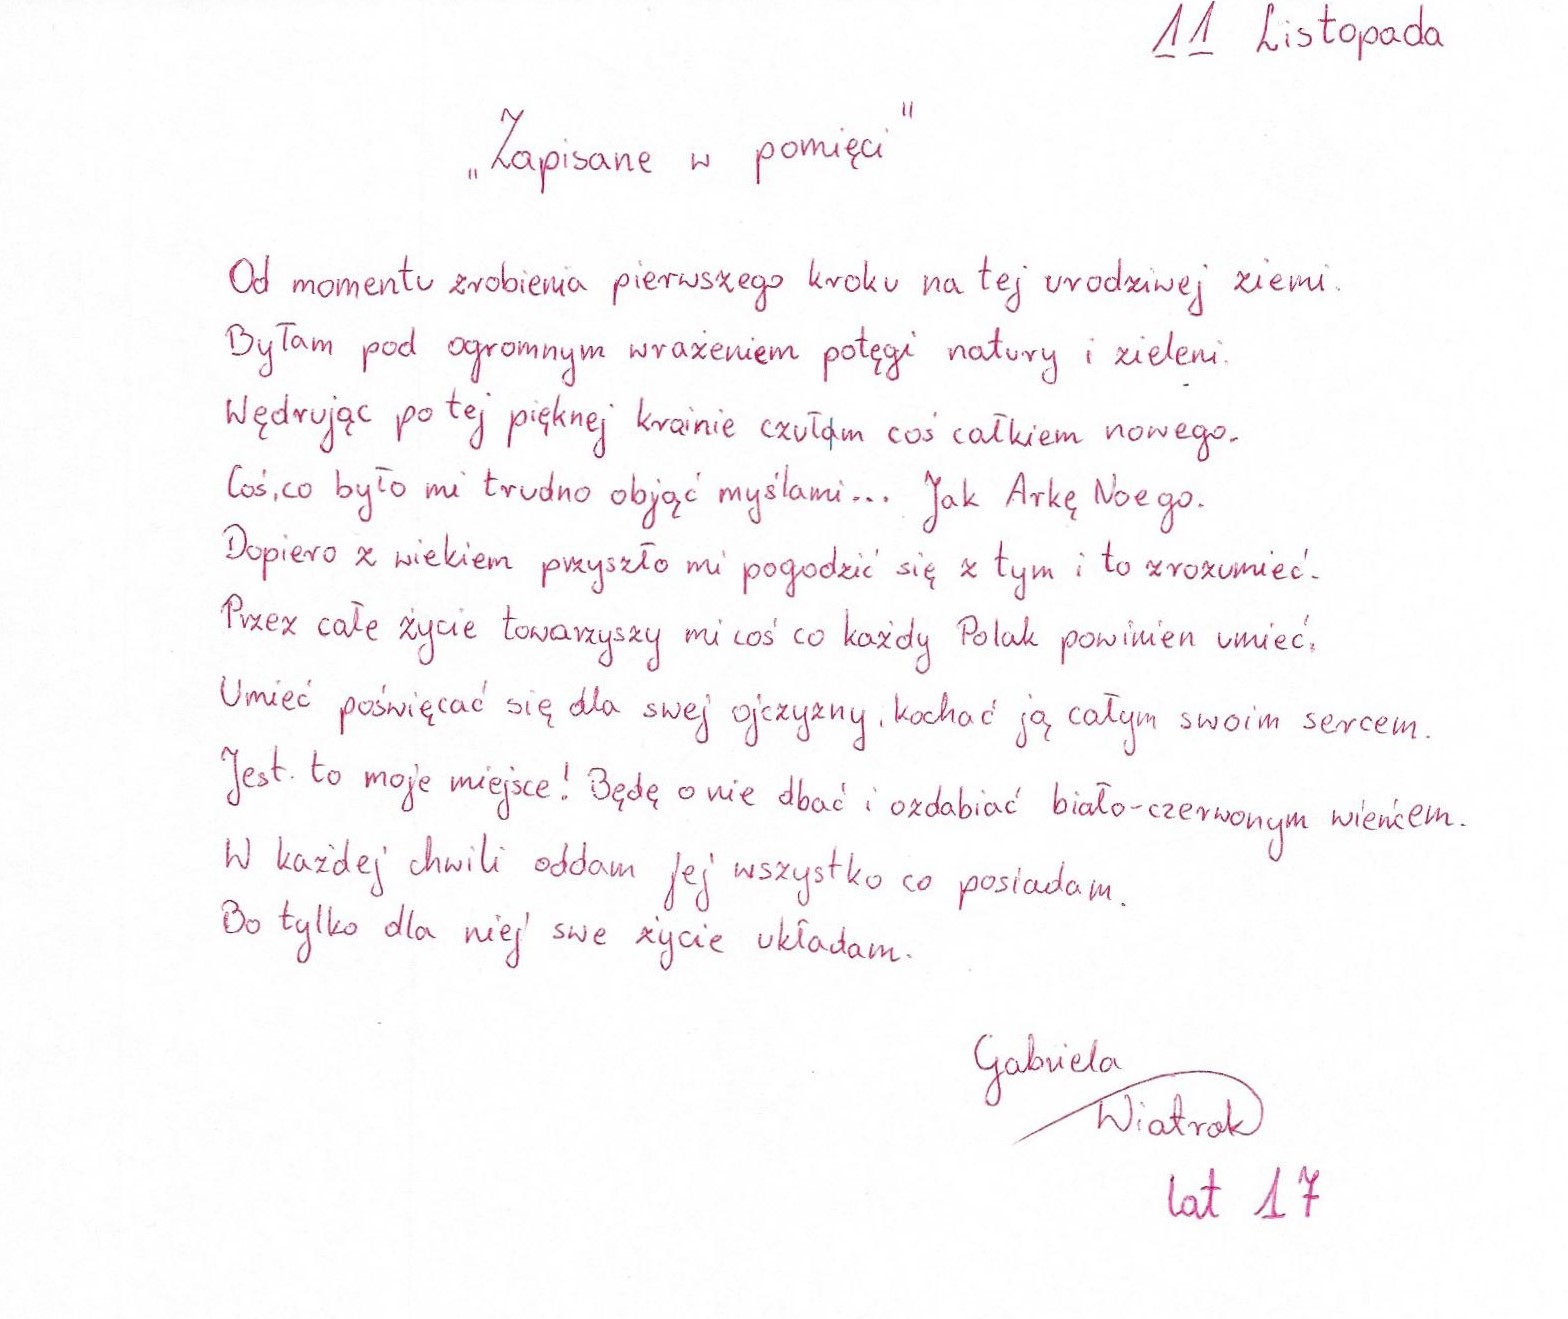 11 Listopada
„Zapisane w pomięci"
Od momentu zrobienia pierwszego kroku na tej urodziwej ziemi.
Byłam pod ogromnym wrażeniem potęgi natury i zieleni.
Wędrując po tej pięknej krainie czułam coś całkiem nowego.
Coś, co było mi trudno objąć myślami... Jak Arkę Noego.
Dopiero z wiekiem przyszło mi pogodzić się z tym i to zrozumieć.
Przez całe życie towarzyszy mi coś co każdy Polak powinien umieć.
Umieć poświęcać się dla swej ojczyzny, kochać ją całym swoim sercem.
Jest to moje miejsce! Będę o nie dbać i ozdabiać biało-czerwonym wieńcem.
W każdej chwili oddam jej wszystko co posiadam.
Bo tylko dla niej swe życie układam.
Gabriela
Wiatrak
lat 17